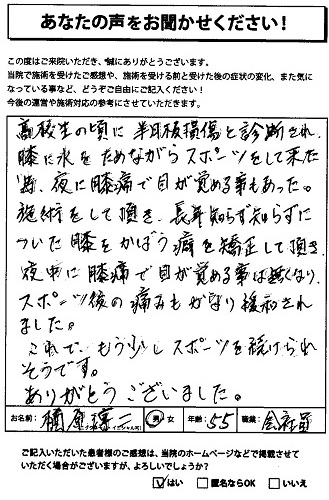 あなたの声をお聞かせください！
この度はご来院いただき、誠にありがとうございます。
当院で施術を受けたご感想や、施術を受ける前と受けた後の症状の変化、また気に
なっている事など、どうぞご自由にご記入ください！
今後の運営や施術対応の参考にさせていただきます。
高校生の頃に半月板損傷と診断され、
膝に水をためながらスポーツをして来た
為、夜に膝痛で目が覚める事もあった。
施術をして頂き、長年知らず知らずに
ついた膝をかばう癖を矯正して頂き、
夜中に膝痛で目が覚める事は無くなり、
スポーツ後の痛みもかなり緩和され
ました。
これで、もう少しスポーツを続けられ
そうです。
ありがとうございました。
お名前： 二 (イニシャル可) 男・女 年齢：55 職業：会社員
ご記入いただいた患者様のご感想は、当院のホームページなどで掲載させて
いただく場合がございますが、よろしいでしょうか？
はい □匿名ならOK □いいえ